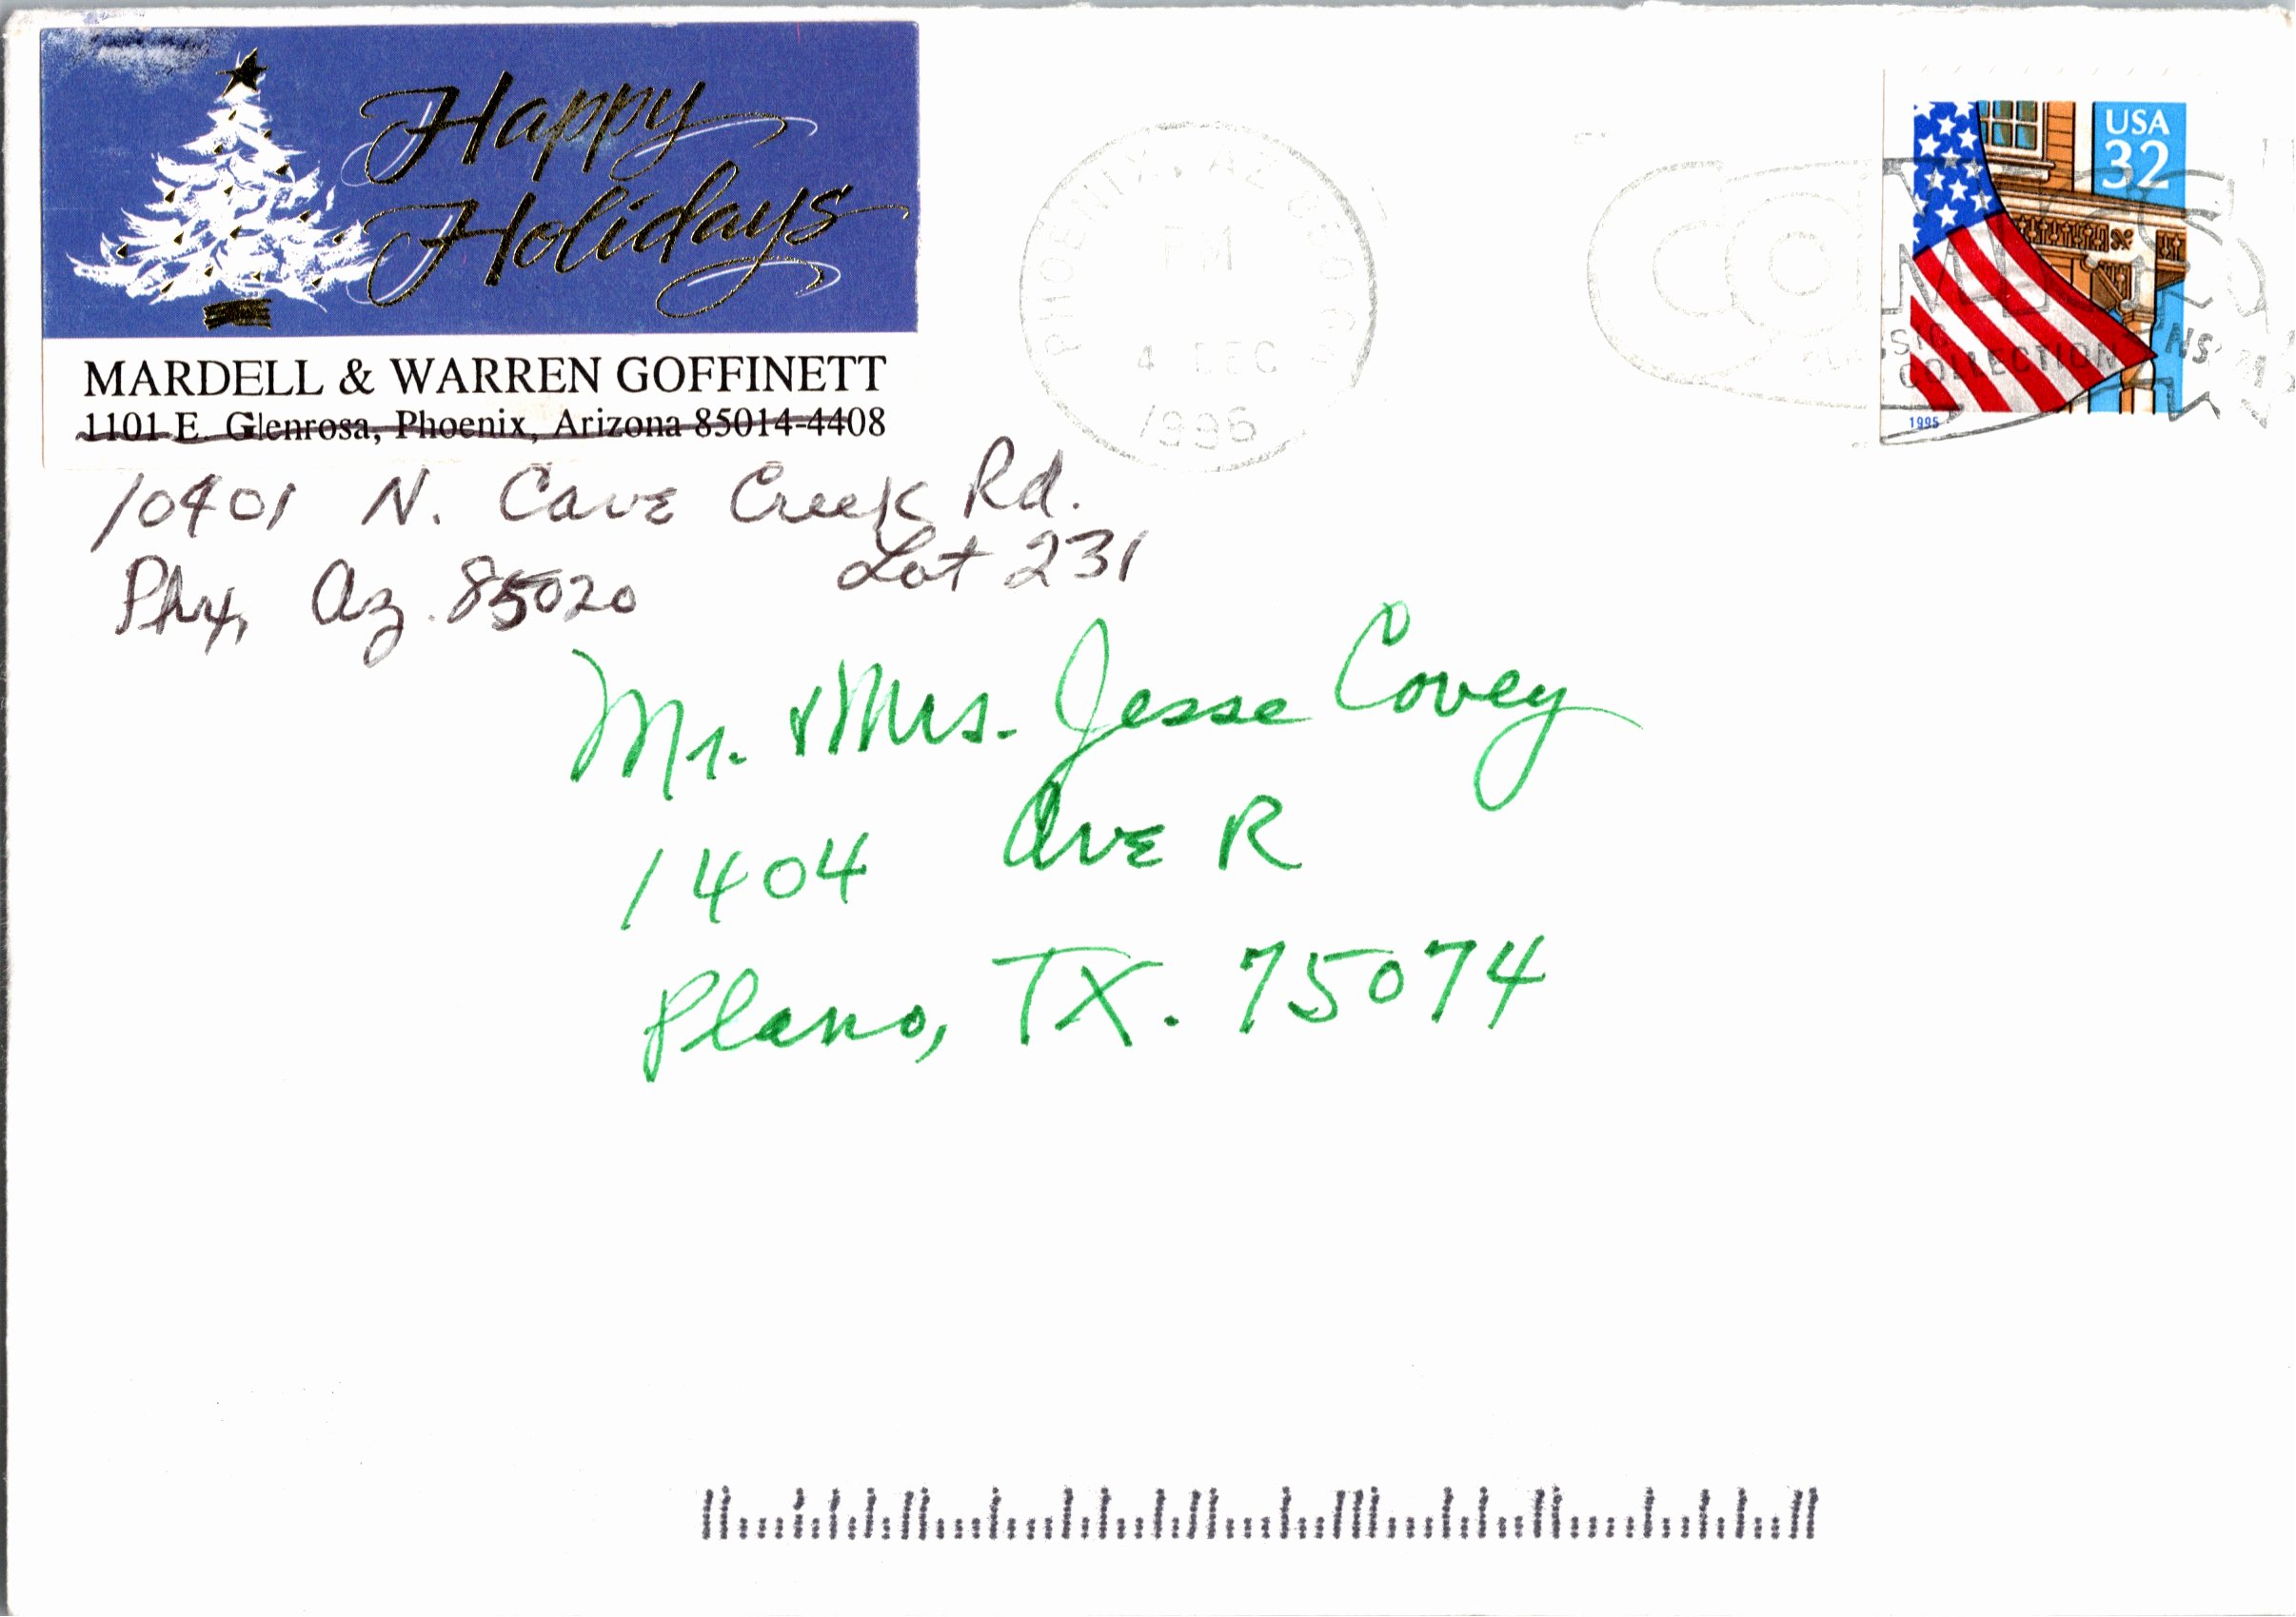 Happy
Holidays
MARDELL & WARREN GOFFINETT
1101 E. Glenrosa, Phoenix, Arizona 85014-4408
10401 N. Cave Creek Rd.
Lot 231
Phx, Az. 85020
PHOENIX, AZ
PM
4 DEC
1996
USA
32
1995
COMICS
CLASSIC
COLLECTION
Mr. & Mrs. Jesse Covey
1404 Ave R
Plano, TX. 75074